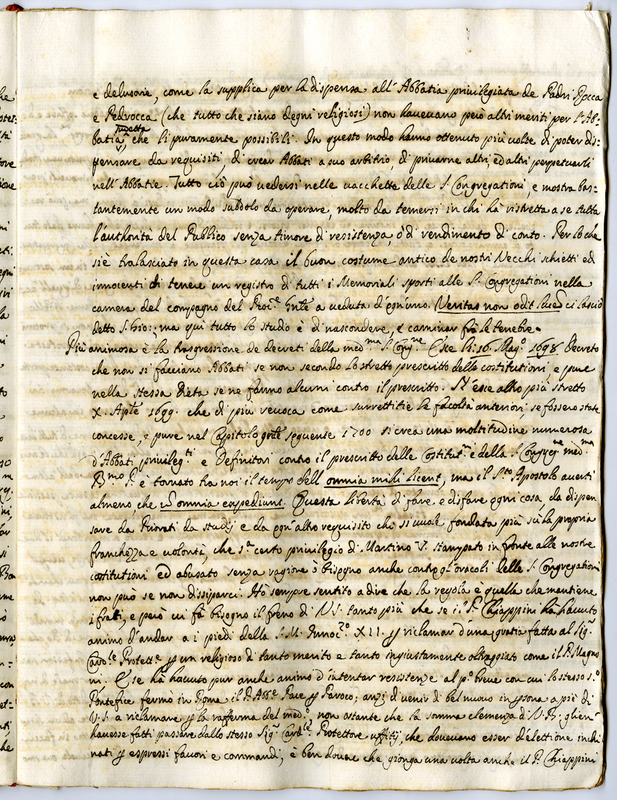 e delusorie, come la supplica per la dispensa all' Abbatia privilegiata de Padri Rocca
e Pedrocca (che tutto che siano degni religiosi) non havevano però altri meriti per l'Ab-
batia che li puramente possibili. In questo modo hanno ottenuto più volte di poter dis-
pensare da requisiti, di crear Abbati a suo arbitrio, di privarne altri, ed altri perpetuarli
nell' Abbatie. Tutto ciò può vedersi nelle vacchette delle S. Congregationi, e mostra bas-
tantemente un modo subdolo da operare, molto da temersi in chi hà ristretta a se tutta
l'authorità del Publico senza timore di resistenza, ò di rendimento di conto. Per lo che
si è tralasciato in questa casa il buon costume antico de nostri Vecchi schietti ed
innocenti di tenere un registro di tutti i Memoriali sporti alle S. Congregationi nella
camera del compagno del Proc.e Gnle a veduta d'ogn'uno. Veritas non odit lucem ci lasciò
detto S. Gio: ma qui tutto lo studio è di nascondere, e caminar frà le tenebre.
Più animosa è la trasgressione de decreti della med.ma S. Cong.ne Esce li 16 Mag.o 1698 Decreto
che non si facciano Abbati se non secondo lo stretto prescritto delle costitutioni, e pure
nella stessa Dieta se ne fanno alcuni contro il prescritto. N'esce altro più stretto
X. Aple 1699. che di più revoca come surrettitie le facoltà anteriori se fossero state
concesse, e pure nel Capitolo gnle seguente 1700 si crea una moltitudine numerosa
d'Abbati privileg.ti e Definitori contro il prescritto delle Costitut.ni e della S. Congreg.ne med.ma
B.mo P. è tornato tra noi il tempo dell' omnia mihi licent, ma il S.to Apostolo avertì
almeno che non omnia expediunt. Questa libertà di fare, e disfare ogni cosa, da dispen
sare da Priorati da studij e da ogn'altro requisito che si vuole, fondata più sù la propria
franchezza e volontà, che s.a certo privilegio di Martino V. stampato in fronte alle nostre
costitutioni ed abusato senza ragione ò bisogno anche contro gl'oracoli delle S. Congregationi
non può se non dissiparci. Hò sempre sentito a dire che la regola è quella che mantiene
i frati, e però ci fà bisogno il freno di V.S. tanto più che se il P. Chiappini hà havuto
animo d'andar a i piedi della S. M. Innoc.o XII. per riclamar d'una gratia fatta al Sig.r
Card.le Protett.e per un religioso di tanto merito e tanto ingiustamente oltraggiato come il P. Magna
ni. E se hà havuto pur anche animo d'intentar resistenze al p.o breve con cui lo stesso S.o
Pontefice fermò in Roma il P. Abb.e Pace per Parroco; anzi di venir di bel nuovo in persona a piè di
V.S. a riclamare per la rafferma del med.o, non ostante che la somma clemenza di V. S. gliene
havesse fatti passare dallo stesso Sig.r Card.le Protettore uffitij, che dovevano esser d'elettione inchi
nati per espressi favori e commandi; è ben dovere che gionga una volta anche il P. Chiappini